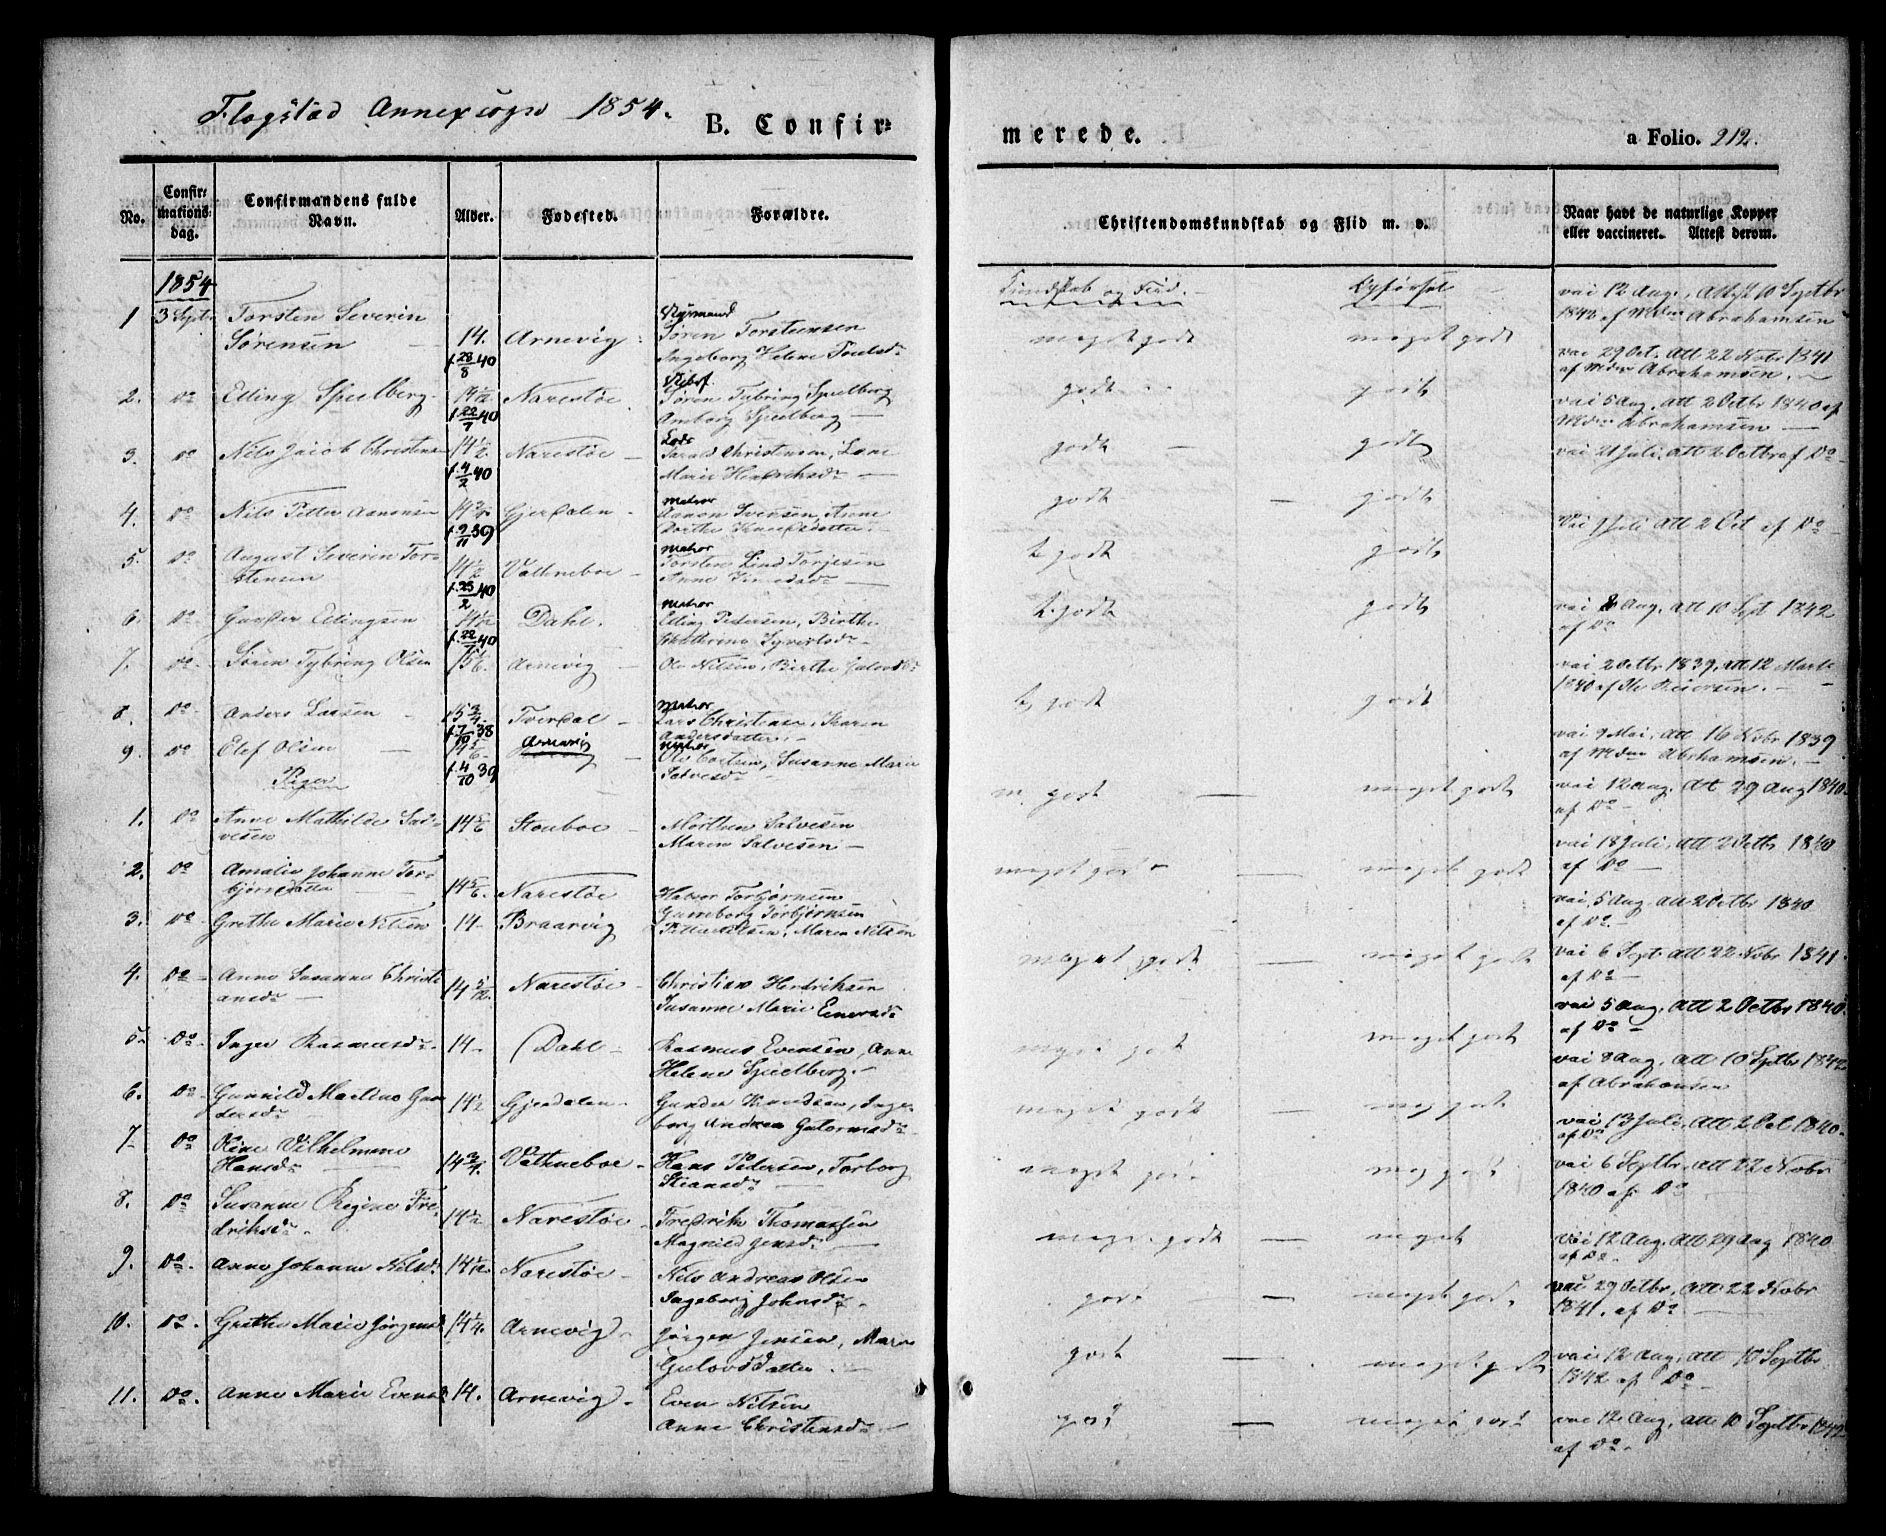 Flagstad Annexsogn 1854.
B. Confir-
merede.
a Folio. 212.
No.
Confir-
mations-
dag.
Confirmandens fulde
Navn.
Alder.
Fødested.
Forældre.
Christendomskundskab og Flid m. v.
Naar havt de naturlige Kopper
eller vaccineret. Attest derom.
1854
Kundskab og Flid.
Opførsel
1 3 Septr Torsten Severin
Sørensen 14. Arnevig
f. 28/8 40
Søren Torstensen
Ingeborg Helene
meget godt meget godt
vac 12 Aug, Att 10 Septbr
1842 af Abrahamsen
2. Do Elling Spielberg 14 1/12 Narestøe
f. 22/7 40
Søren Tybring Spielberg
Amborg Spielberg
godt godt
vac 29 Oct. Att 22 Nobr 1841
af Abrahamsen.
3. Do Nils Jacob Christensen 14 1/2 Narestøe
f. 4/2 40
Lods
Tarald Christensen, Lene
Marie Hendriksdr
godt godt
vac 5 Aug, Att 2 Octbr 1840 af
Abrahamsen
4. Do Nils Petter Aanonsen 14 3/4 Gjerdalen
f. 9/11 39
Matros
Aanon Iversen, Anne
Dorthe
godt godt
vac 21 Juli, Att 2 Octbr af Do
5. Do August Severin Tor-
stensen 14 1/2 Vatneboe
f. 23/2 40
Matros
Torsten Lind Torjesen
Anne
t. godt godt
Vac 1 Juli Att 2 Oct af Do
6. Do Ellingsen 14 1/12 Dahl.
f. 22/7 40
Matros
Elling Pedersen, Birthe
Kathrine Syvertsdr
t. godt godt
vac 8 Aug, Att 10 Sept 1842
af Do
7. Do Søren Tybring Olsen 15 1/6 Arnevig
Ole Nilsen, Birthe
t. godt godt
vac 2 Octbr 1839, Att 12 Marts
1840 af Reiersen.
8. Do Anders Larsen 15 3/4 Tverdal
f. 7/10 38
Matros
Lars Christensen, Karen
Andersdatter
vac 9 Mai, Att 16 Nobr 1839
af Abrahamsen.
9. Do Elef Olsen 14 5/6 Arnevig
f. 4/10 39
Matros
Ole, Susanne Marie
Salvesdr
Piger
1. Do Anne Mathilde Sal-
vesen 14 5/6 Stouboe
Morthen Salvesen
Maren Salvesen
m. godt meget godt
vac 12 Aug, Att 29 Aug 1840
af Do
2. Do Amalie Johanne Tor-
bjørnsdatter 14 5/6. Narestøe
Halvor Torbjørnsen
Gunneborg Torbjørnsen
meget godt meget godt
vac 18 Juli, Att 2 Octbr 1840
af Do
3. Do Grethe Marie Nilsen 14 Braarvig
Petter Nilsen, Maren Nilsen
vac 5 Aug, Att 2 Octbr 1840
af Do.
4. Do Anne Susanne Christi-
ansdr 14 5/12. Narestøe
Christian Hendriksen
Susanne Marie Einersdr
meget godt meget godt
vac 6 Sept. Att 22 Nobr 1841
af Do
5. Do Inger Rasmusdr 14 Dahl
Rasmus Evensen, Anne
Helene Spielberg.
meget godt meget godt
vac 5 Aug, Att 2 Octbr 1840
af Do
6. Do Gunnild Martine Gun-
dersdr 14 1/2 Gjerdalen
Gunder Knudsen, Inge-
borg Andrea Gutormsdr
meget godt meg godt
vac 8 Aug, Att 10 Septbr 1842
af Abrahamsen
7 Do Oline Vilhelmine
Hansdr 14 3/4. Vatneboe
Hans Pedersen, Torborg
Stiansdr
meget godt meg godt
vac 13 Juli, Att 2 Oct 1840
af Do
8. Do Susanne Regine Fre-
driksdr 14 1/2 Narestøe
Fredrik Thomassen
Magnild Jensdr
meget godt meget
vac 6 Septbr, Att 22 Nobr
1840 af Do
9. Do Anne Johanne Nilsdr 14 1/12. Narestøe
Nils Andreas Olsen
Ingeborg Johnsdr.
godt meget godt
vac 12 Aug, Att 29 Aug 1840
af Do.
10. Do. Grethe Marie Jørgensdr 14 1/4. Arnevig
Jørgen Jensen, Maren
Gulovsdatter.
godt meget godt
vac 29 Octbr, Att 22 Nobr
1841. af Do
11. Do. Anne Marie Evensdr 14. Arnevig
Even Nilsen
Anne Christensdr
godt meget godt
vac 12 Aug, Att 10 Septbr
1842 af Do
vac 12 Aug, Att 10 Septbr 1842
af Do